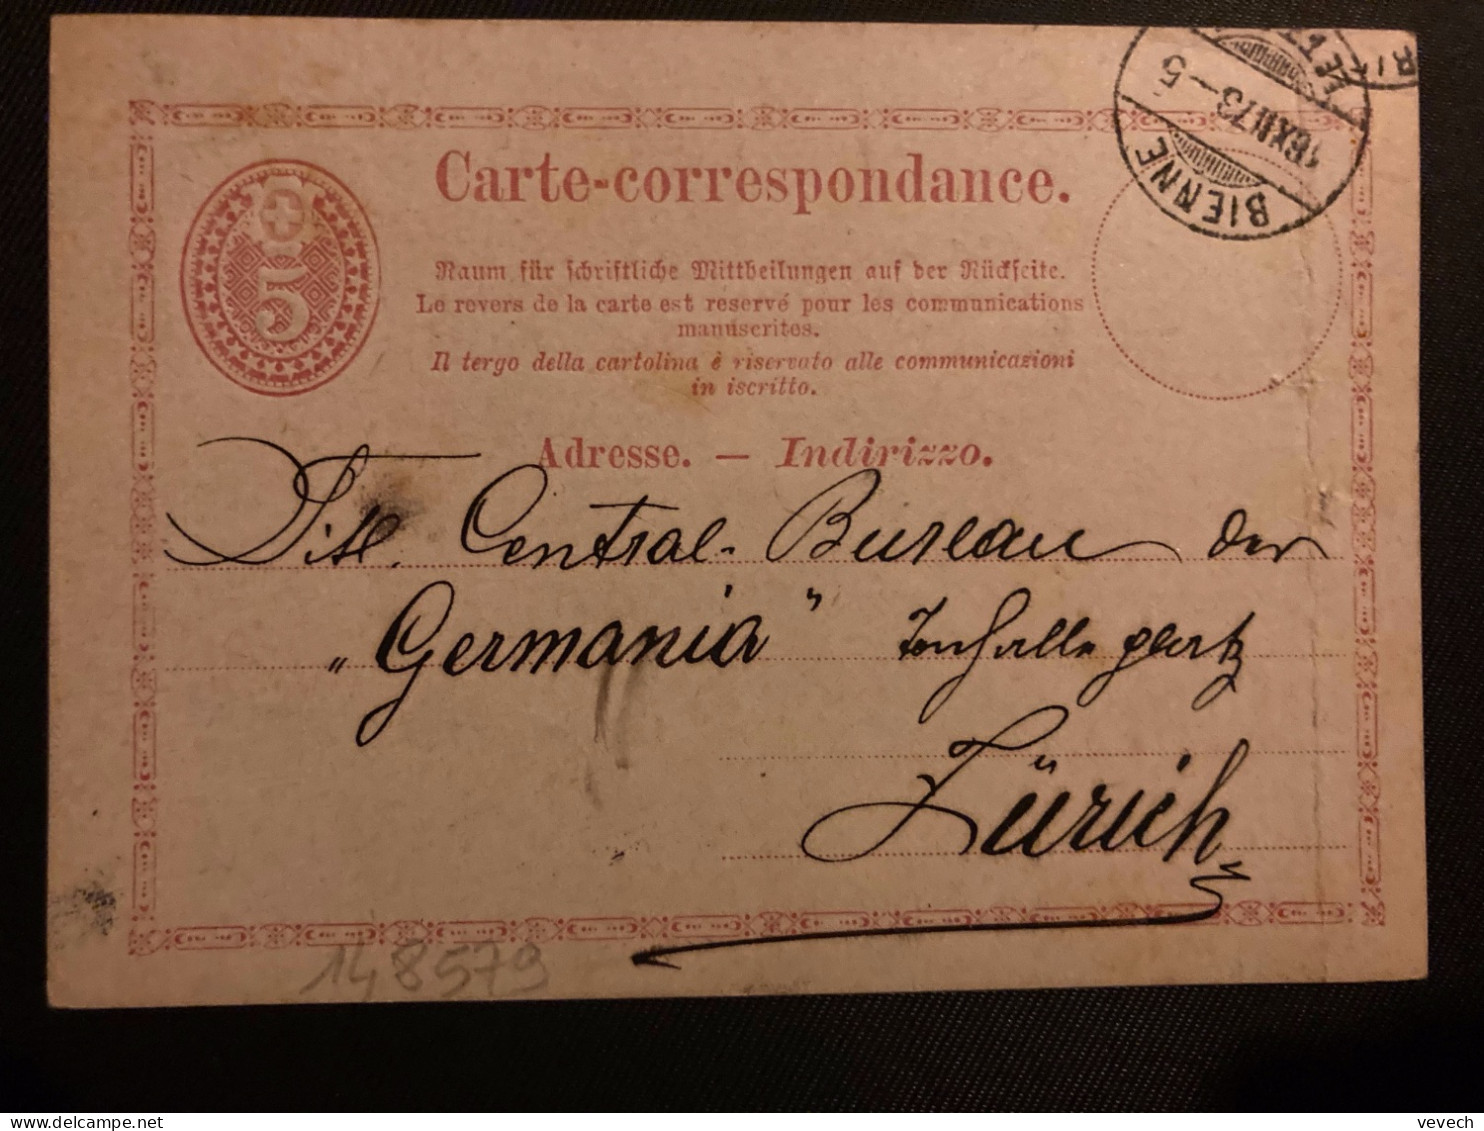 Carte-correspondance.
5
Raum für schriftliche Mittheilungen auf der Rückseite.
Le revers de la carte est reservé pour les communications
manuscrites.
Il tergo della cartolina è riservato alle communicazioni
in iscritto.
Adresse. — Indirizzo.
BIENNE
16 XII 73 — 5
LETT
Titl. Central-Bureau der
„Germania" Tonhalleplatz
Zürich
148579
vevech